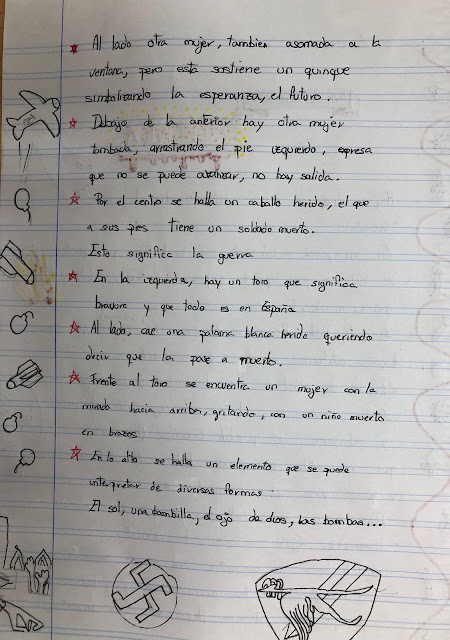 Al lado otra mujer, tambien asomada a la
ventana, pero esta sostiene un quinque
simbolizando la esperanza, el futuro.
Debajo de la anterior hay otra mujer
tumbada, arrastrando el pie izquierdo, expresa
que no se puede avanzar, no hay salida.
Por el centro se halla un caballo herido, el que
a sus pies tiene un soldado muerto.
Esto significa la guerra
En la izquierda, hay un toro que significa
bravura y que todo es en España
Al lado, cae una paloma blanca herida queriendo
decir que la pase a muerto.
Frente al toro se encuentra un mujer con la
mirada hacia arriba, gritando, con un niño muerto
en brazos
En lo alto se halla un elemento que se puede
interpretar de diversas formas:
El sol, una bombilla, el ojo de dios, las bombas...